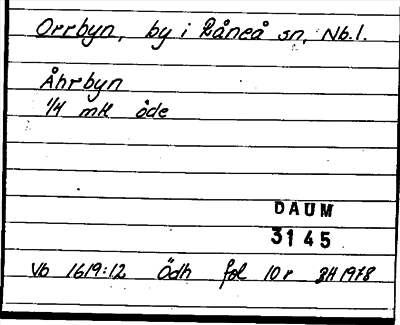 Orrbyn, by i Råneå sn, Nb.l.
Åhrbyn
1/4 mtl öde
DAUM
3145
Vb 1619:12 Ödh fol 10r BH 1978